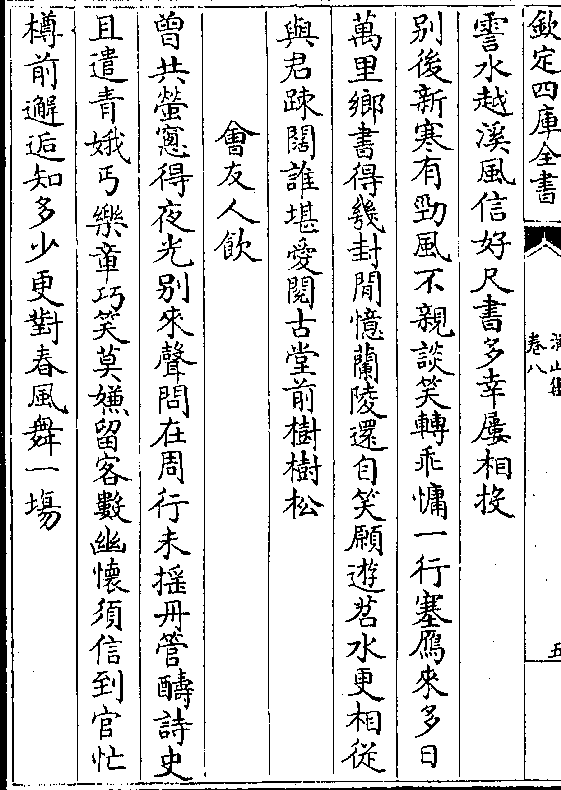 欽定四庫全書
卷八
五
霅水越溪風信好尺書多幸屢相投
别後新寒有勁風不親談笑轉乖慵一行塞鴈來多日
萬里鄉書得幾封閒憶蘭陵還自笑願遊苕水更相從
與君踈闊誰堪愛閱古堂前樹樹松
會友人飲
曾共螢窓得夜光别來聲問在周行未揺丹管醻詩史
且遣青娥丐樂章巧笑莫嫌留客數幽懷須信到官忙
樽前邂逅知多少更對春風舞一場